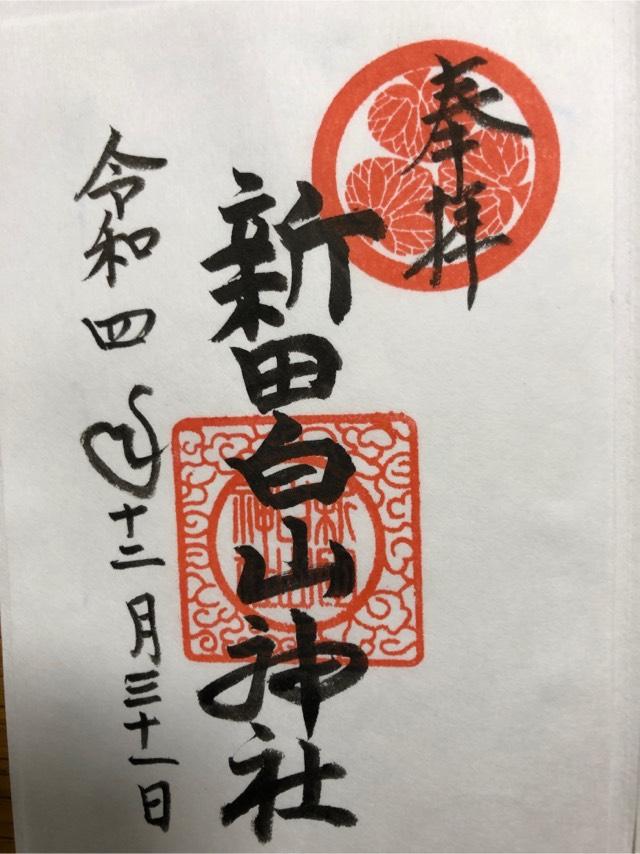 奉拝
新田白山神社
令和四年十二月三十一日